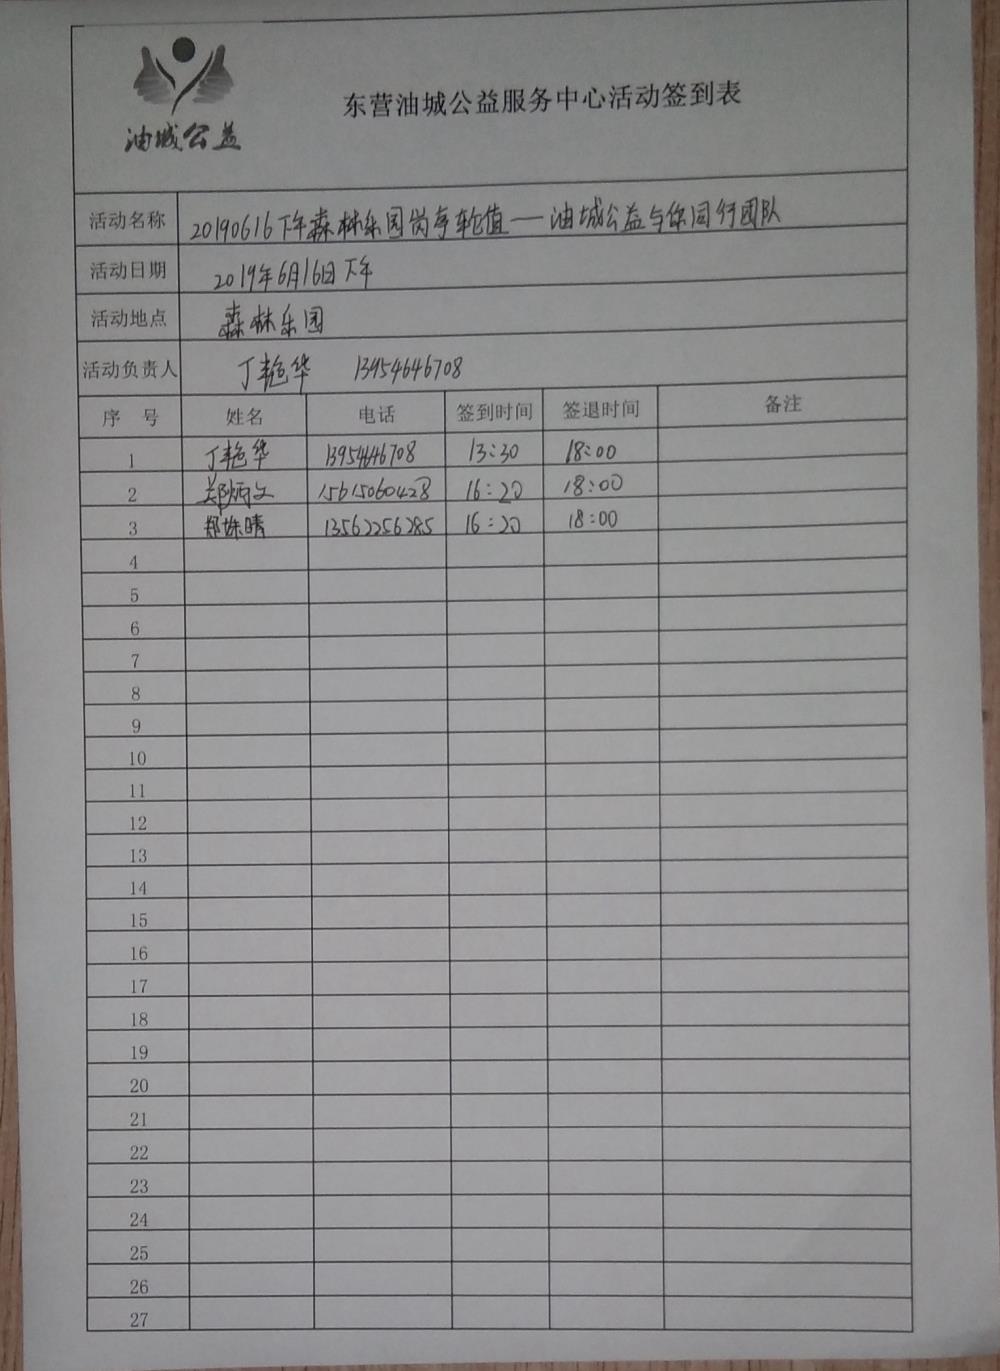 油城公益
东营油城公益服务中心活动签到表
活动名称 20190616下午森林乐园岗亭轮值——油城公益与你同行团队
活动日期 2019年6月16日下午
活动地点 森林乐园
活动负责人 丁艳华 13954646708
序 号 姓名 电话 签到时间 签退时间 备注
1 丁艳华 13954646708 13:30 18:00
2 郑炳文 15615060428 16:20 18:00
3 郑姝晴 13562256285 16:20 18:00
4
5
6
7
8
9
10
11
12
13
14
15
16
17
18
19
20
21
22
23
24
25
26
27